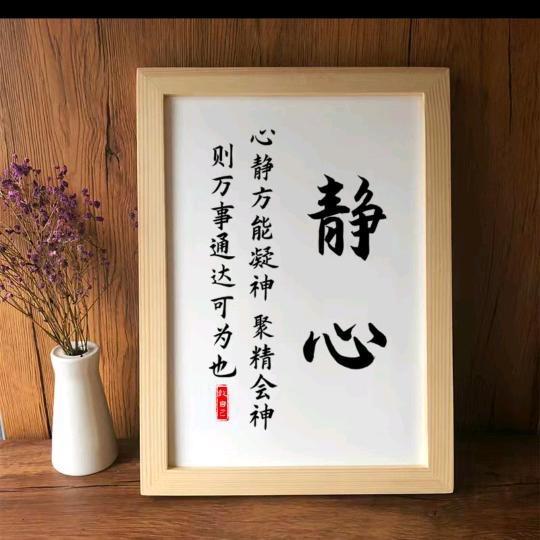 静心
心静方能凝神 聚精会神
则万事通达可为也
致自己